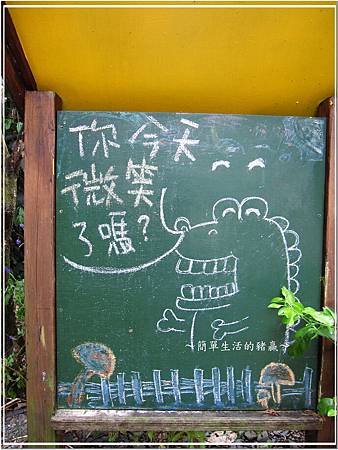 你今天
微笑
了嗎?
~簡單生活的豬贏~